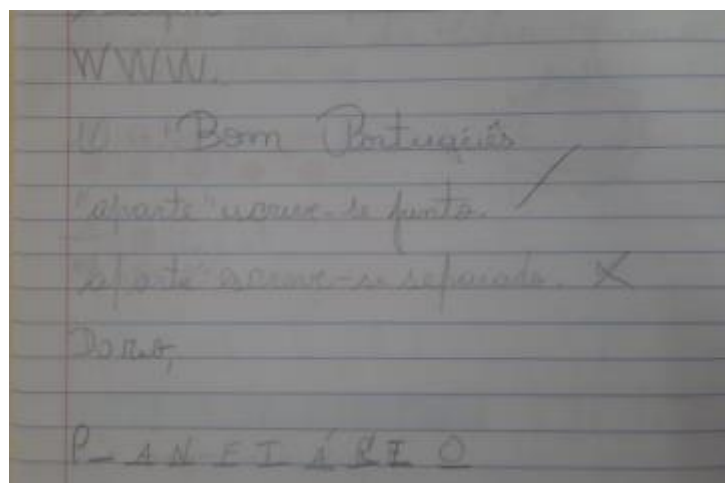 WWW.
"Bom Português
"aparte" escreve-se junto. /
"aparte" escreve-se separado. X
P_ A N E T Á R I O